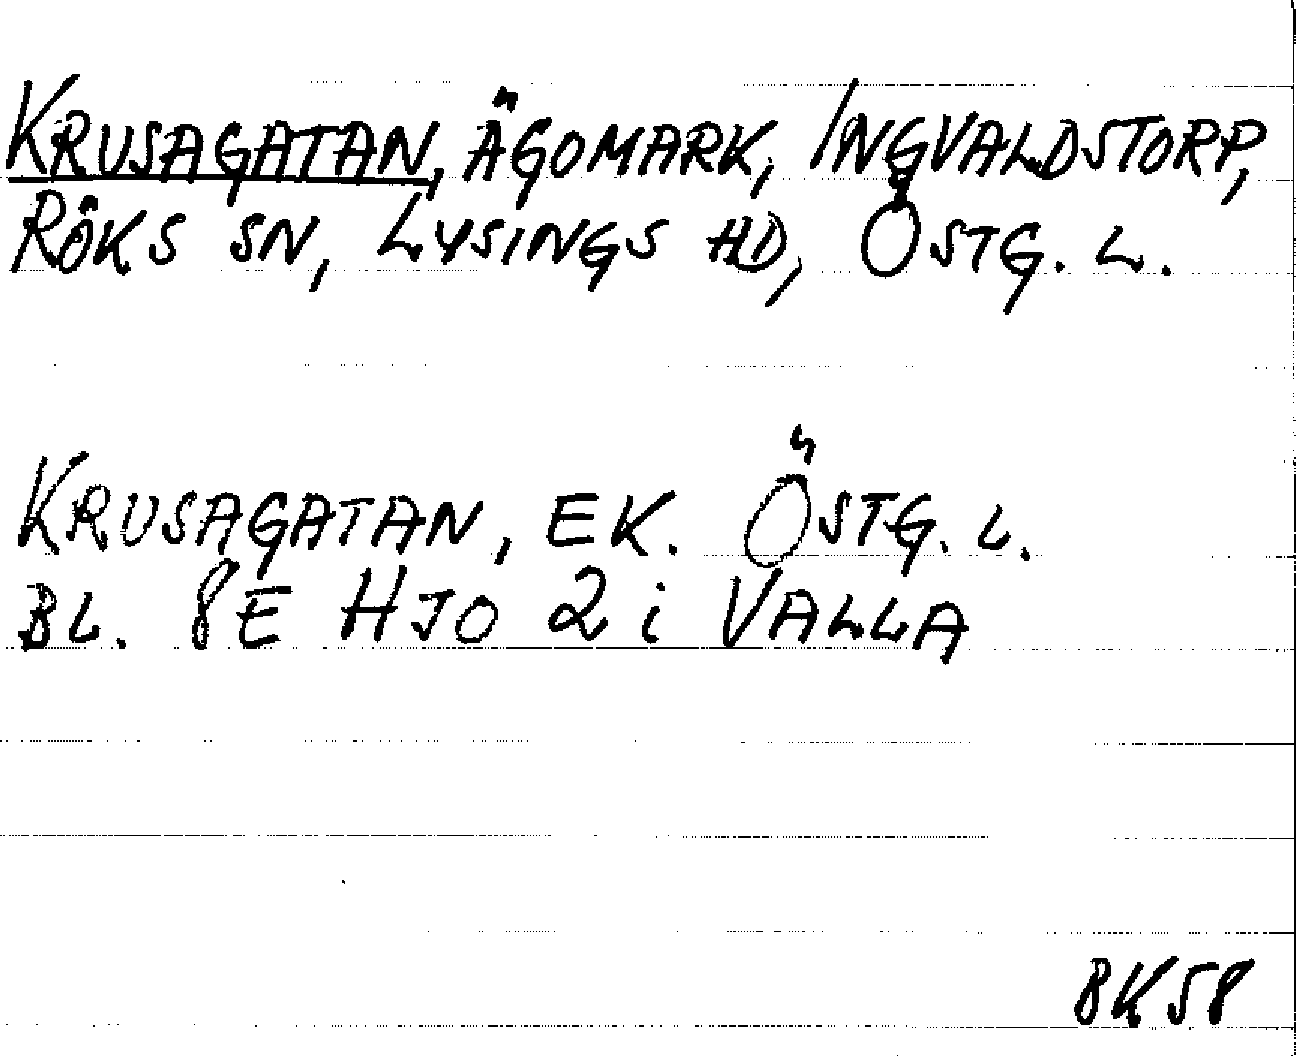 KRUSAGATAN, ÄGOMARK, INGVALDSTORP,
RÖKS SN, LYSINGS HD, ÖSTG. L.
KRUSAGATAN, EK. ÖSTG. L.
BL. 8E HJO 2 i VALLA
BK58